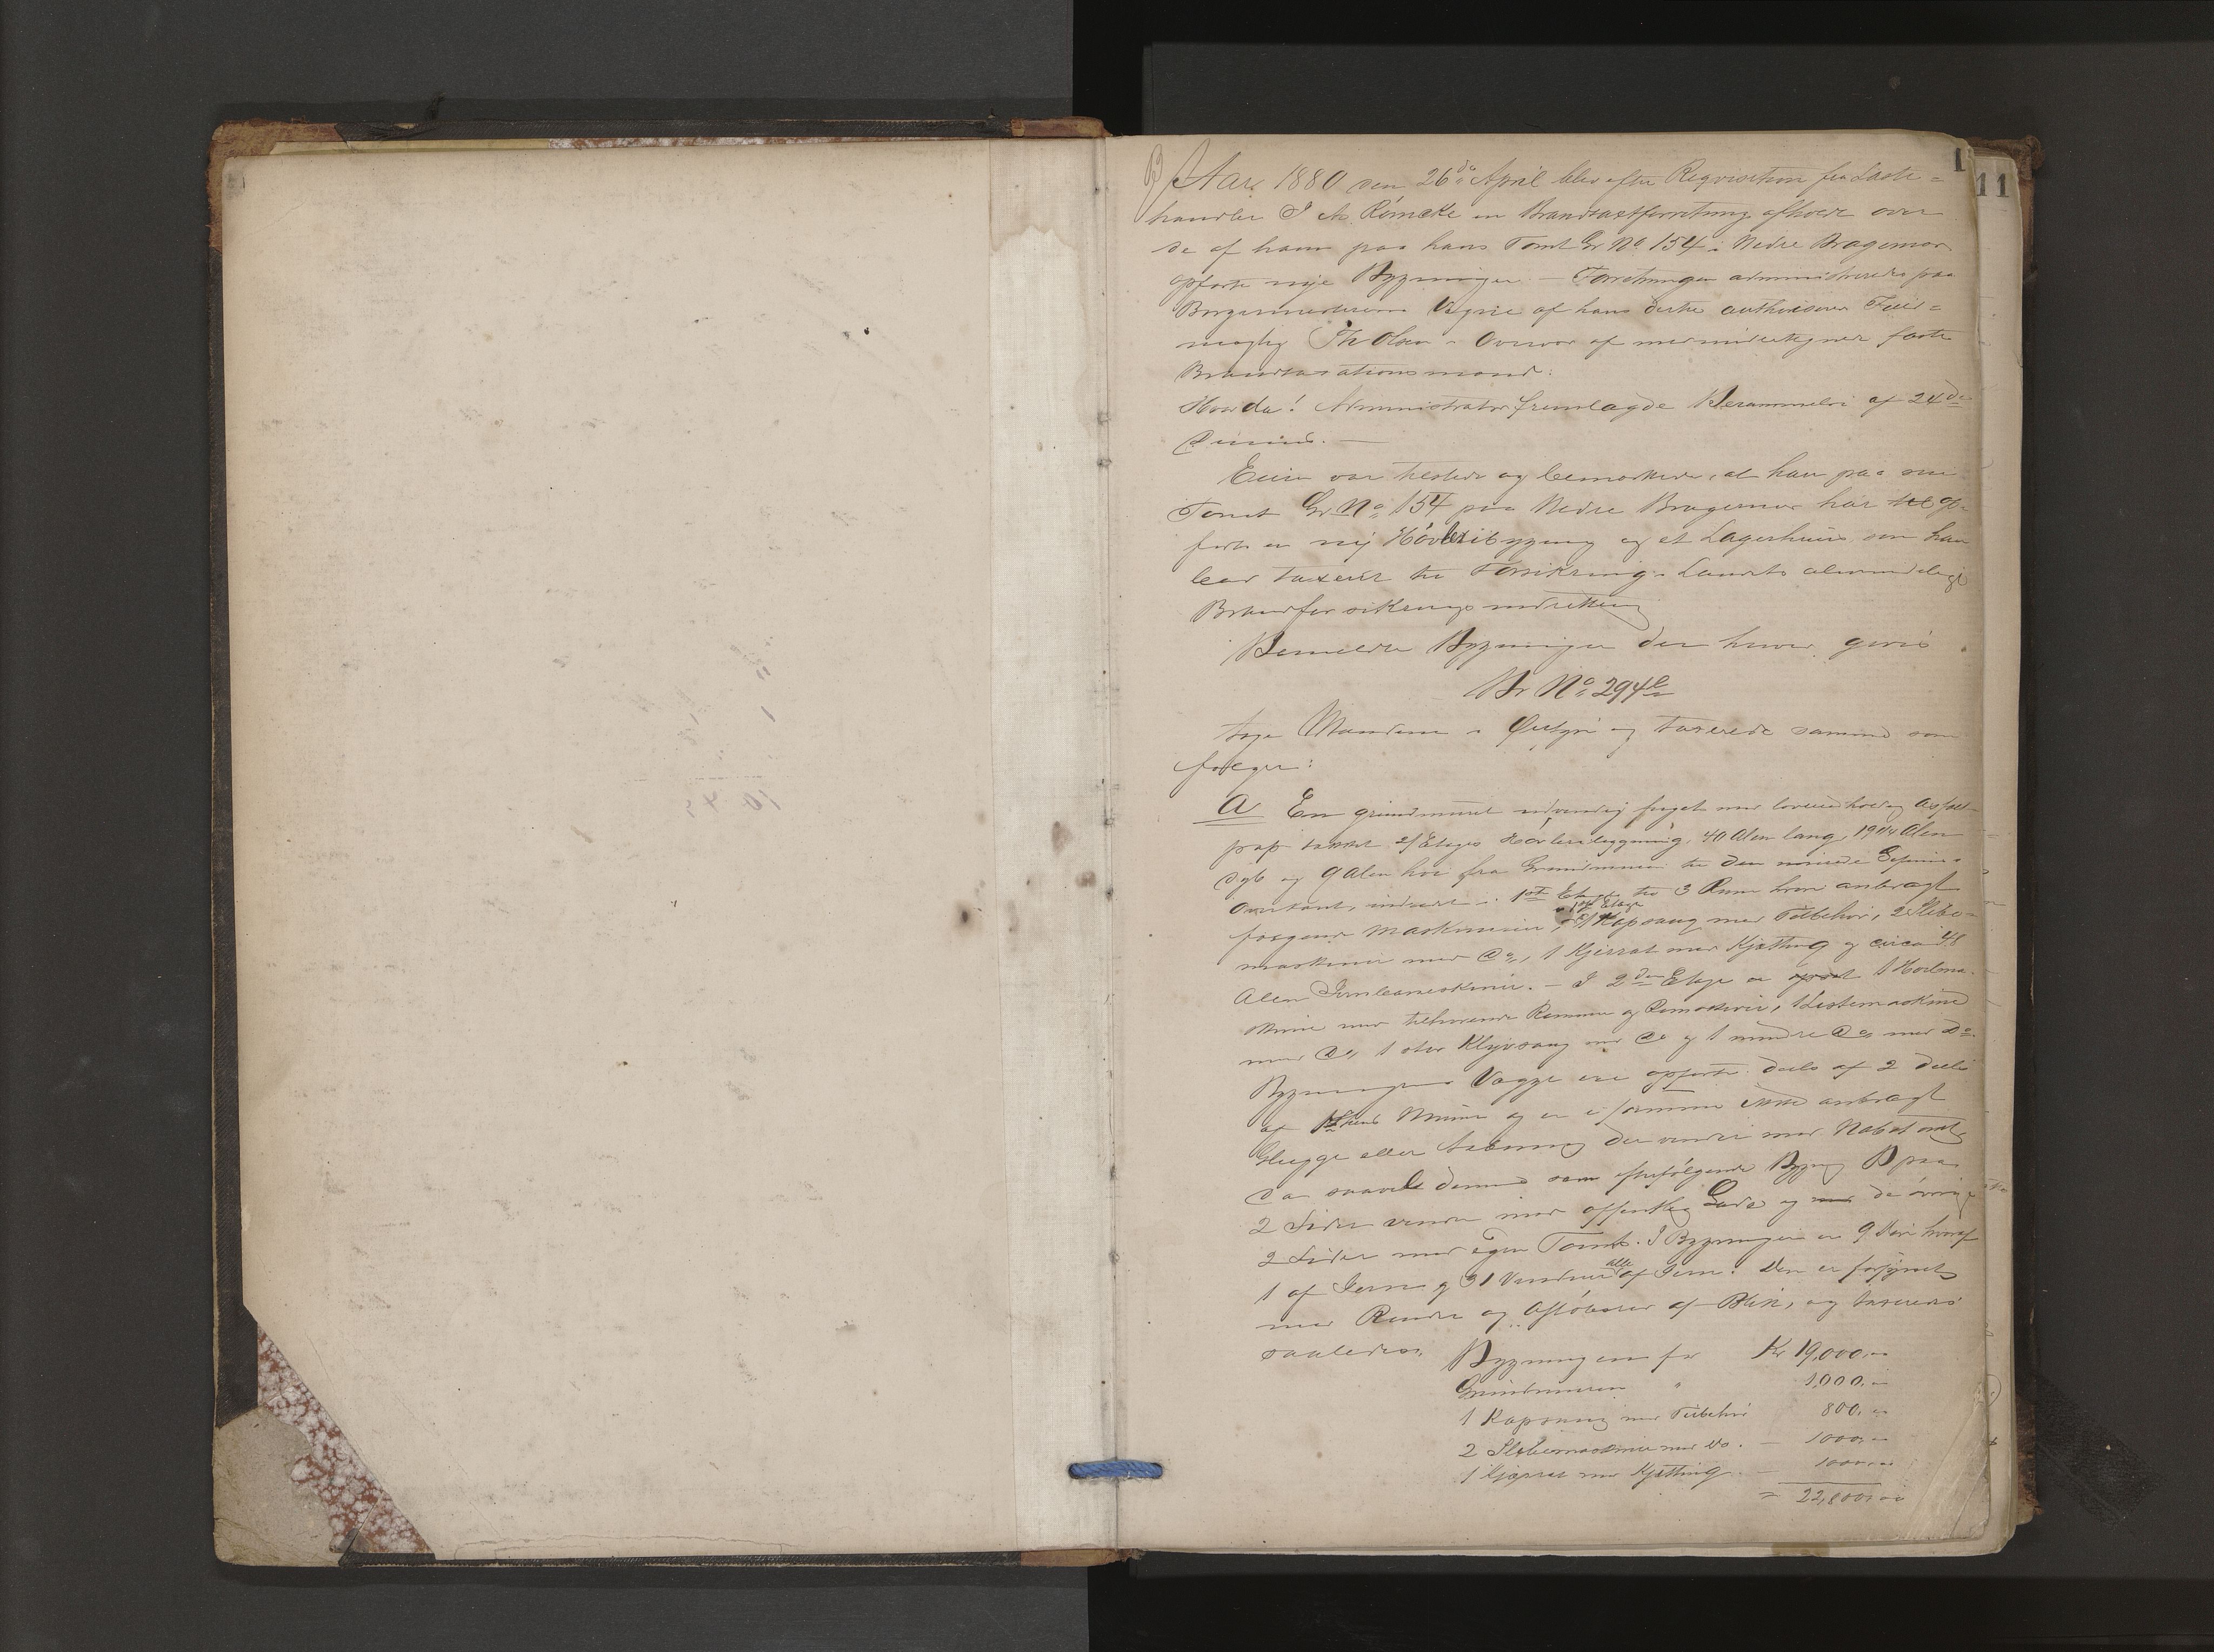 1
11
Aar 1880 den 26de April blev efter Reqvisition fra Last-
handler J A Rómcke en Brandtaxtforretning afholdt over
de af ham paa hans Tomt Gr No 154 i Nedre Bragernæs
opførte nye Bygninger – Forretningen administreredes paa
Borgermesterens Vegne af hans dertil authoriserede Fuld-
mægtig Th Olsen i Overvær af medundertegnede faste
Brandtaxationsmænd:
Hvorda! Administrator fremlagde Berammelse af 24de
Eieren var tilstede og bemærkede, at han paa sin
Tomt Gr No 154 paa Nedre Bragernæs har op-
ført en ny Hóvleribygning og et Lagerhuus, som han
lod taxeret til Forsikring i Landets almindelige
Brandforsikringsindretning
Bemeldte Bygninger der hver gives
Br No 294b
toge Mændene i Øiesyn og taxerede samme som
følger:
A En grundmuret udvendig fuget med asfalt-
pap tækket 2 Etages Hóvleribygning, 40 Alen lang, 19 1/4 Alen
dyb og 9 Alen høi fra Grundmuren til den Gesims
Overkant, indredet i 1ste Etage til 3 Rum hvori anbragt
i 1ste Etage
følgende Maskinerier, 1 Kapsaug med Tilbehør, 2 Slibe-
maskiner med Do, 1 Kjerrat med Kjætting og circa 48
Alen Jernbaneskinner. – I 2den Etage er opsat 1 Hovlma-
skine med tilhørende Remme og Remskiver, 1 Listemaskine
med Do, 1 stor Klyvsaug med Do og 1 mindre Do med Do.
Bygningens Vægge ere opførte deels af 2 deels
af 1 1/2 Steens Mure og er i samme ikke anbragt
Glugge eller Aabning der vender mod Nabotomt,
da saavel denne som efterfølgende Bygg B paa
2 Sider vender mod offentlig Gade og de óvrige
2 Sider mod egen Tomt. I Bygningen er 9 Døre hvoraf
alle
1 af Jern og 31 Vinduer af Jern. Den er forsynet
med Render og Aflóbsrør af Blik, og taxeredes
saaledes:
Bygningen for Kr 19,000,00
Grundmuren " 1,000.00
1 Kapsaug med Tilbehør 800,00
2 Slibemaskiner med do. – 1000,00
1 Kjerrat med Kjætting. – 1000,00
= 22,800,00